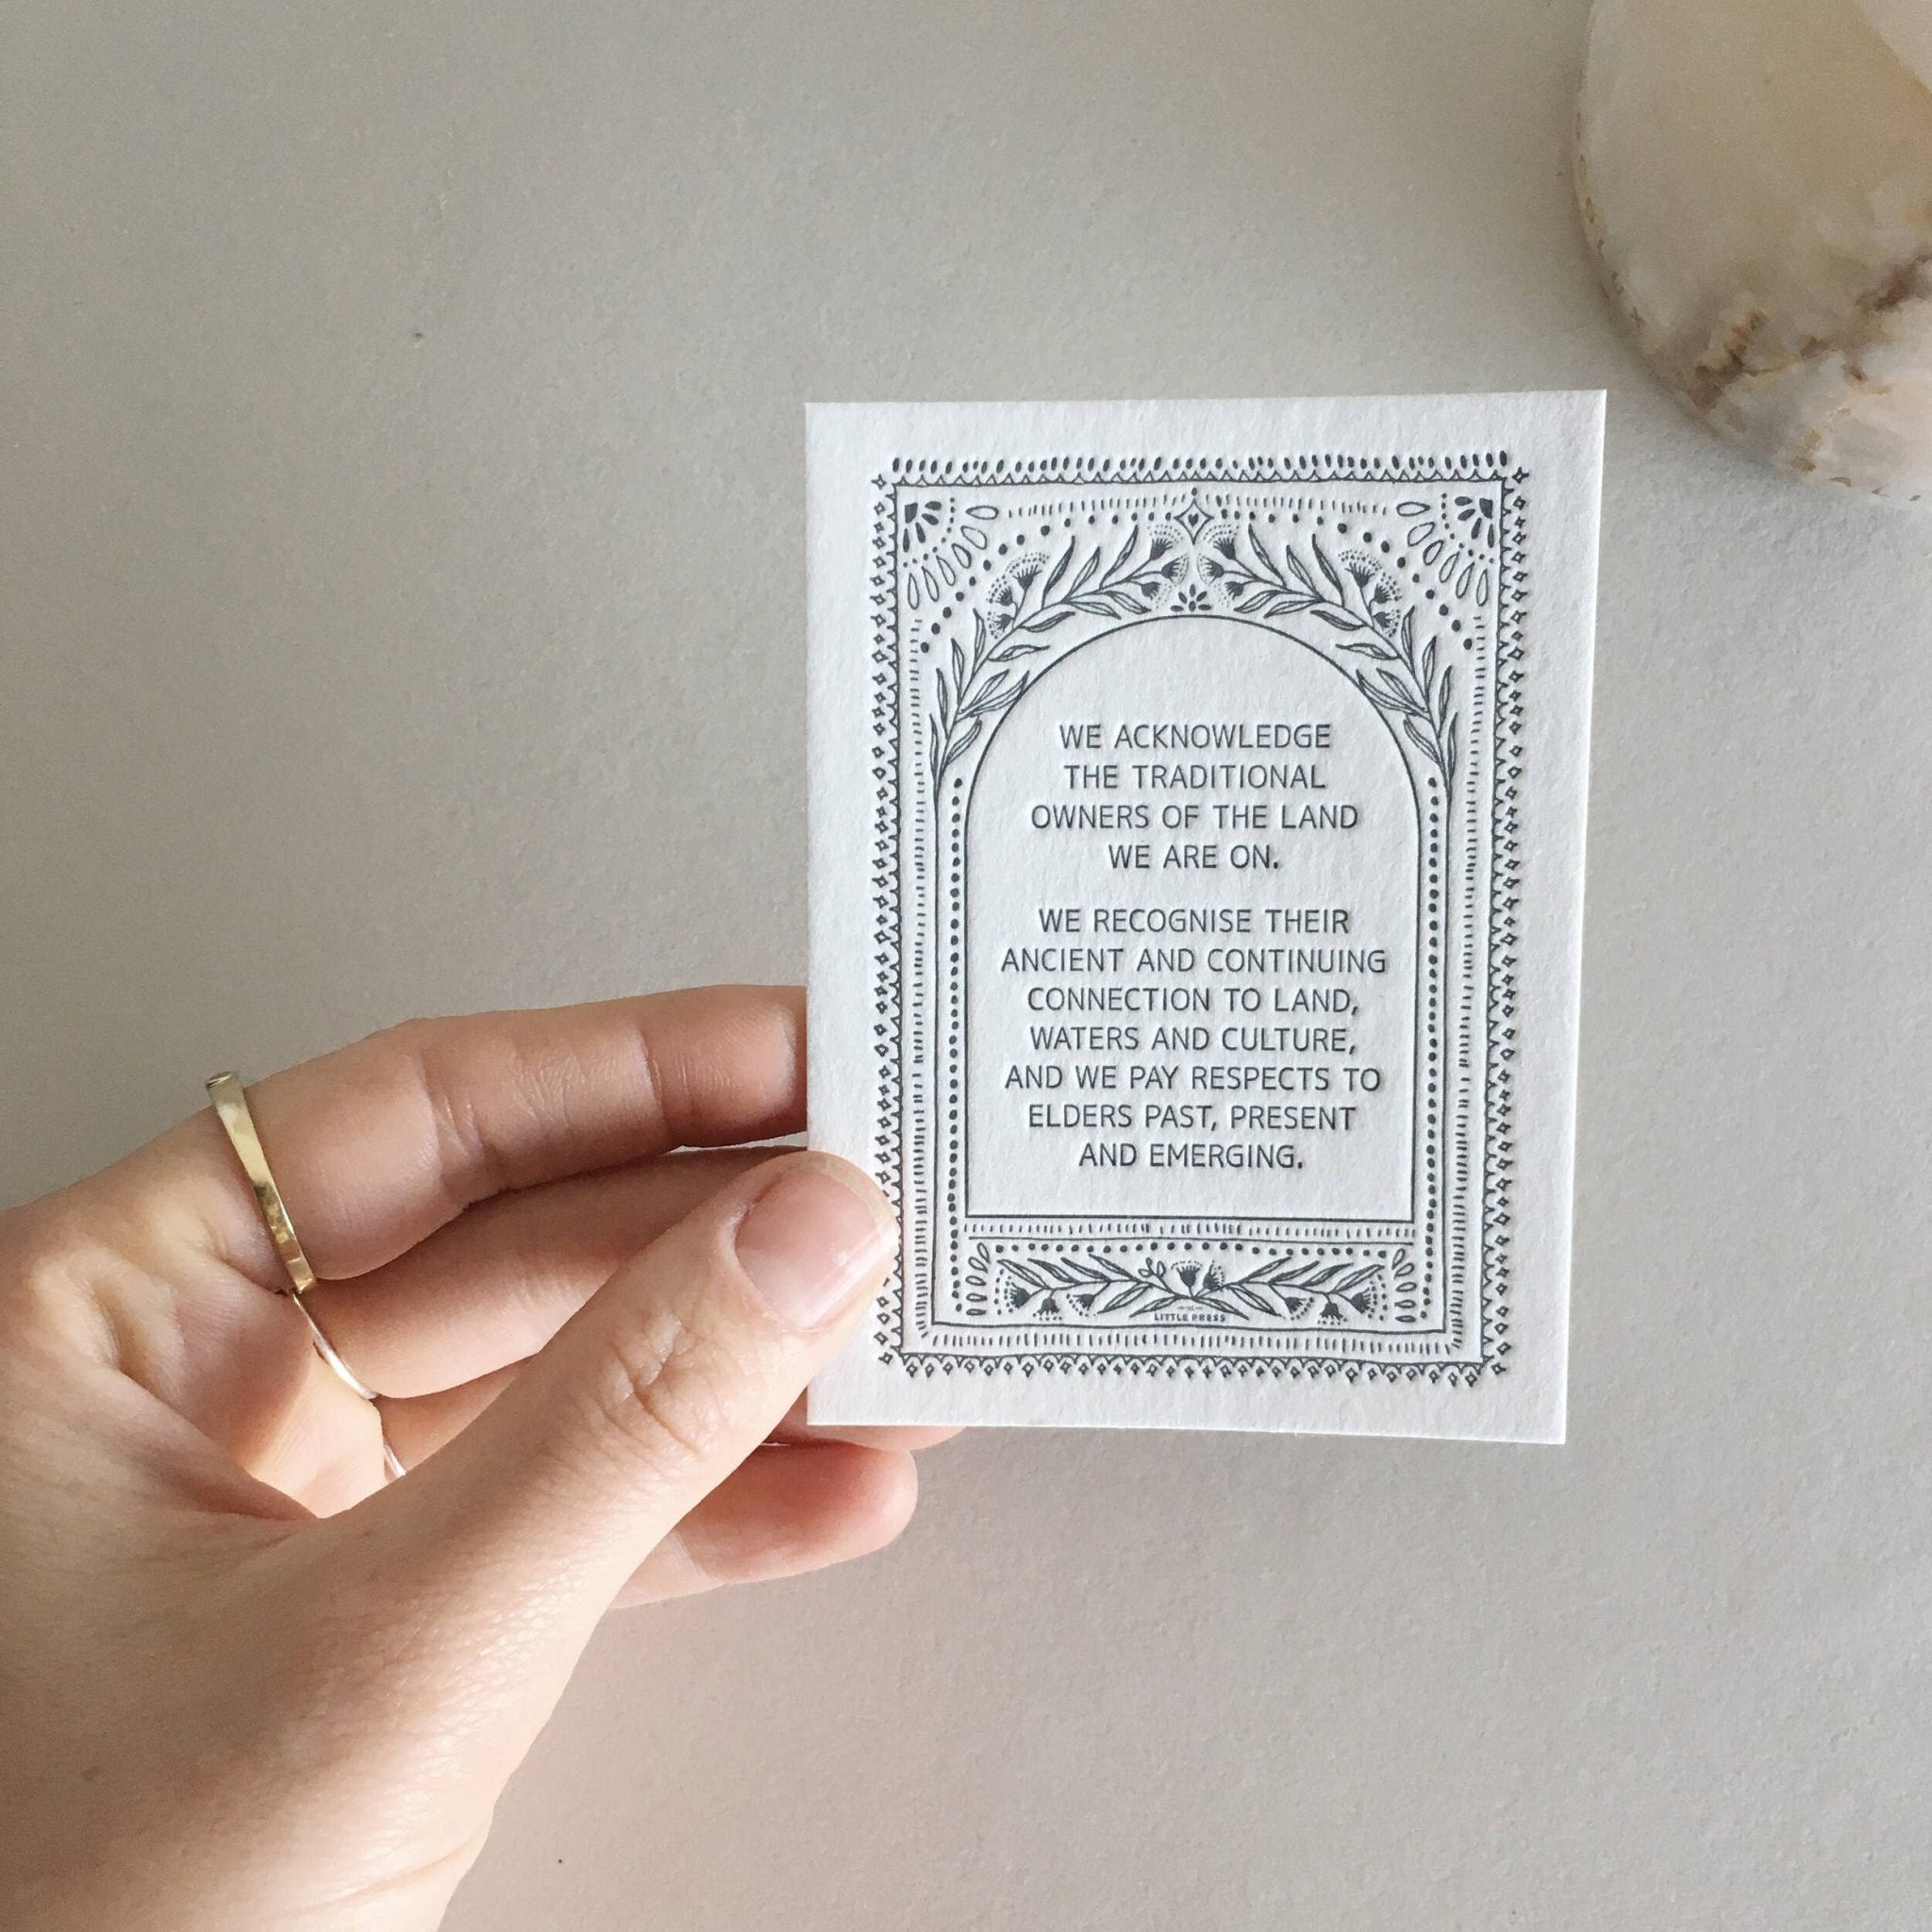 WE ACKNOWLEDGE
THE TRADITIONAL
OWNERS OF THE LAND
WE ARE ON.
WE RECOGNISE THEIR
ANCIENT AND CONTINUING
CONNECTION TO LAND,
WATERS AND CULTURE,
AND WE PAY RESPECTS TO
ELDERS PAST, PRESENT
AND EMERGING.
LITTLE PRESS